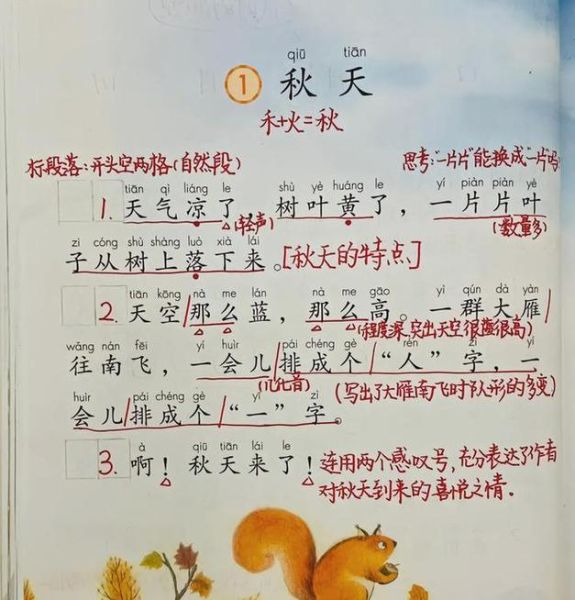 qiū tiān
1 秋天
禾+火=秋
标段落:开头空两格(自然段)
思考:"一片片"能换成"一片吗
tiān qì liáng le shù yè huáng le yí piàn piàn yè
1. 天气凉了,树叶黄了,一片片叶
(轻声) (数量多)
zi cóng shù shàng luò xià lái
子从树上落下来。[秋天的特点]
tiān kōng nà me lán nà me gāo yì qún dà yàn
2. 天空那么蓝,那么高。一群大雁/
(程度深,突出天空很蓝很高)
wǎng nán fēi yí huìr pái chéng gè rén zì yí
往南飞,一会儿/排成个/"人"字,一
(儿化音) (写出了大雁南飞时队形的多变)
huìr pái chéng gè yī zì
会儿/排成个/"一"字。
à qiū tiān lái le
3. 啊!秋天来了!连用两个感叹号,充分表达了作者
对秋天到来的喜悦之情.